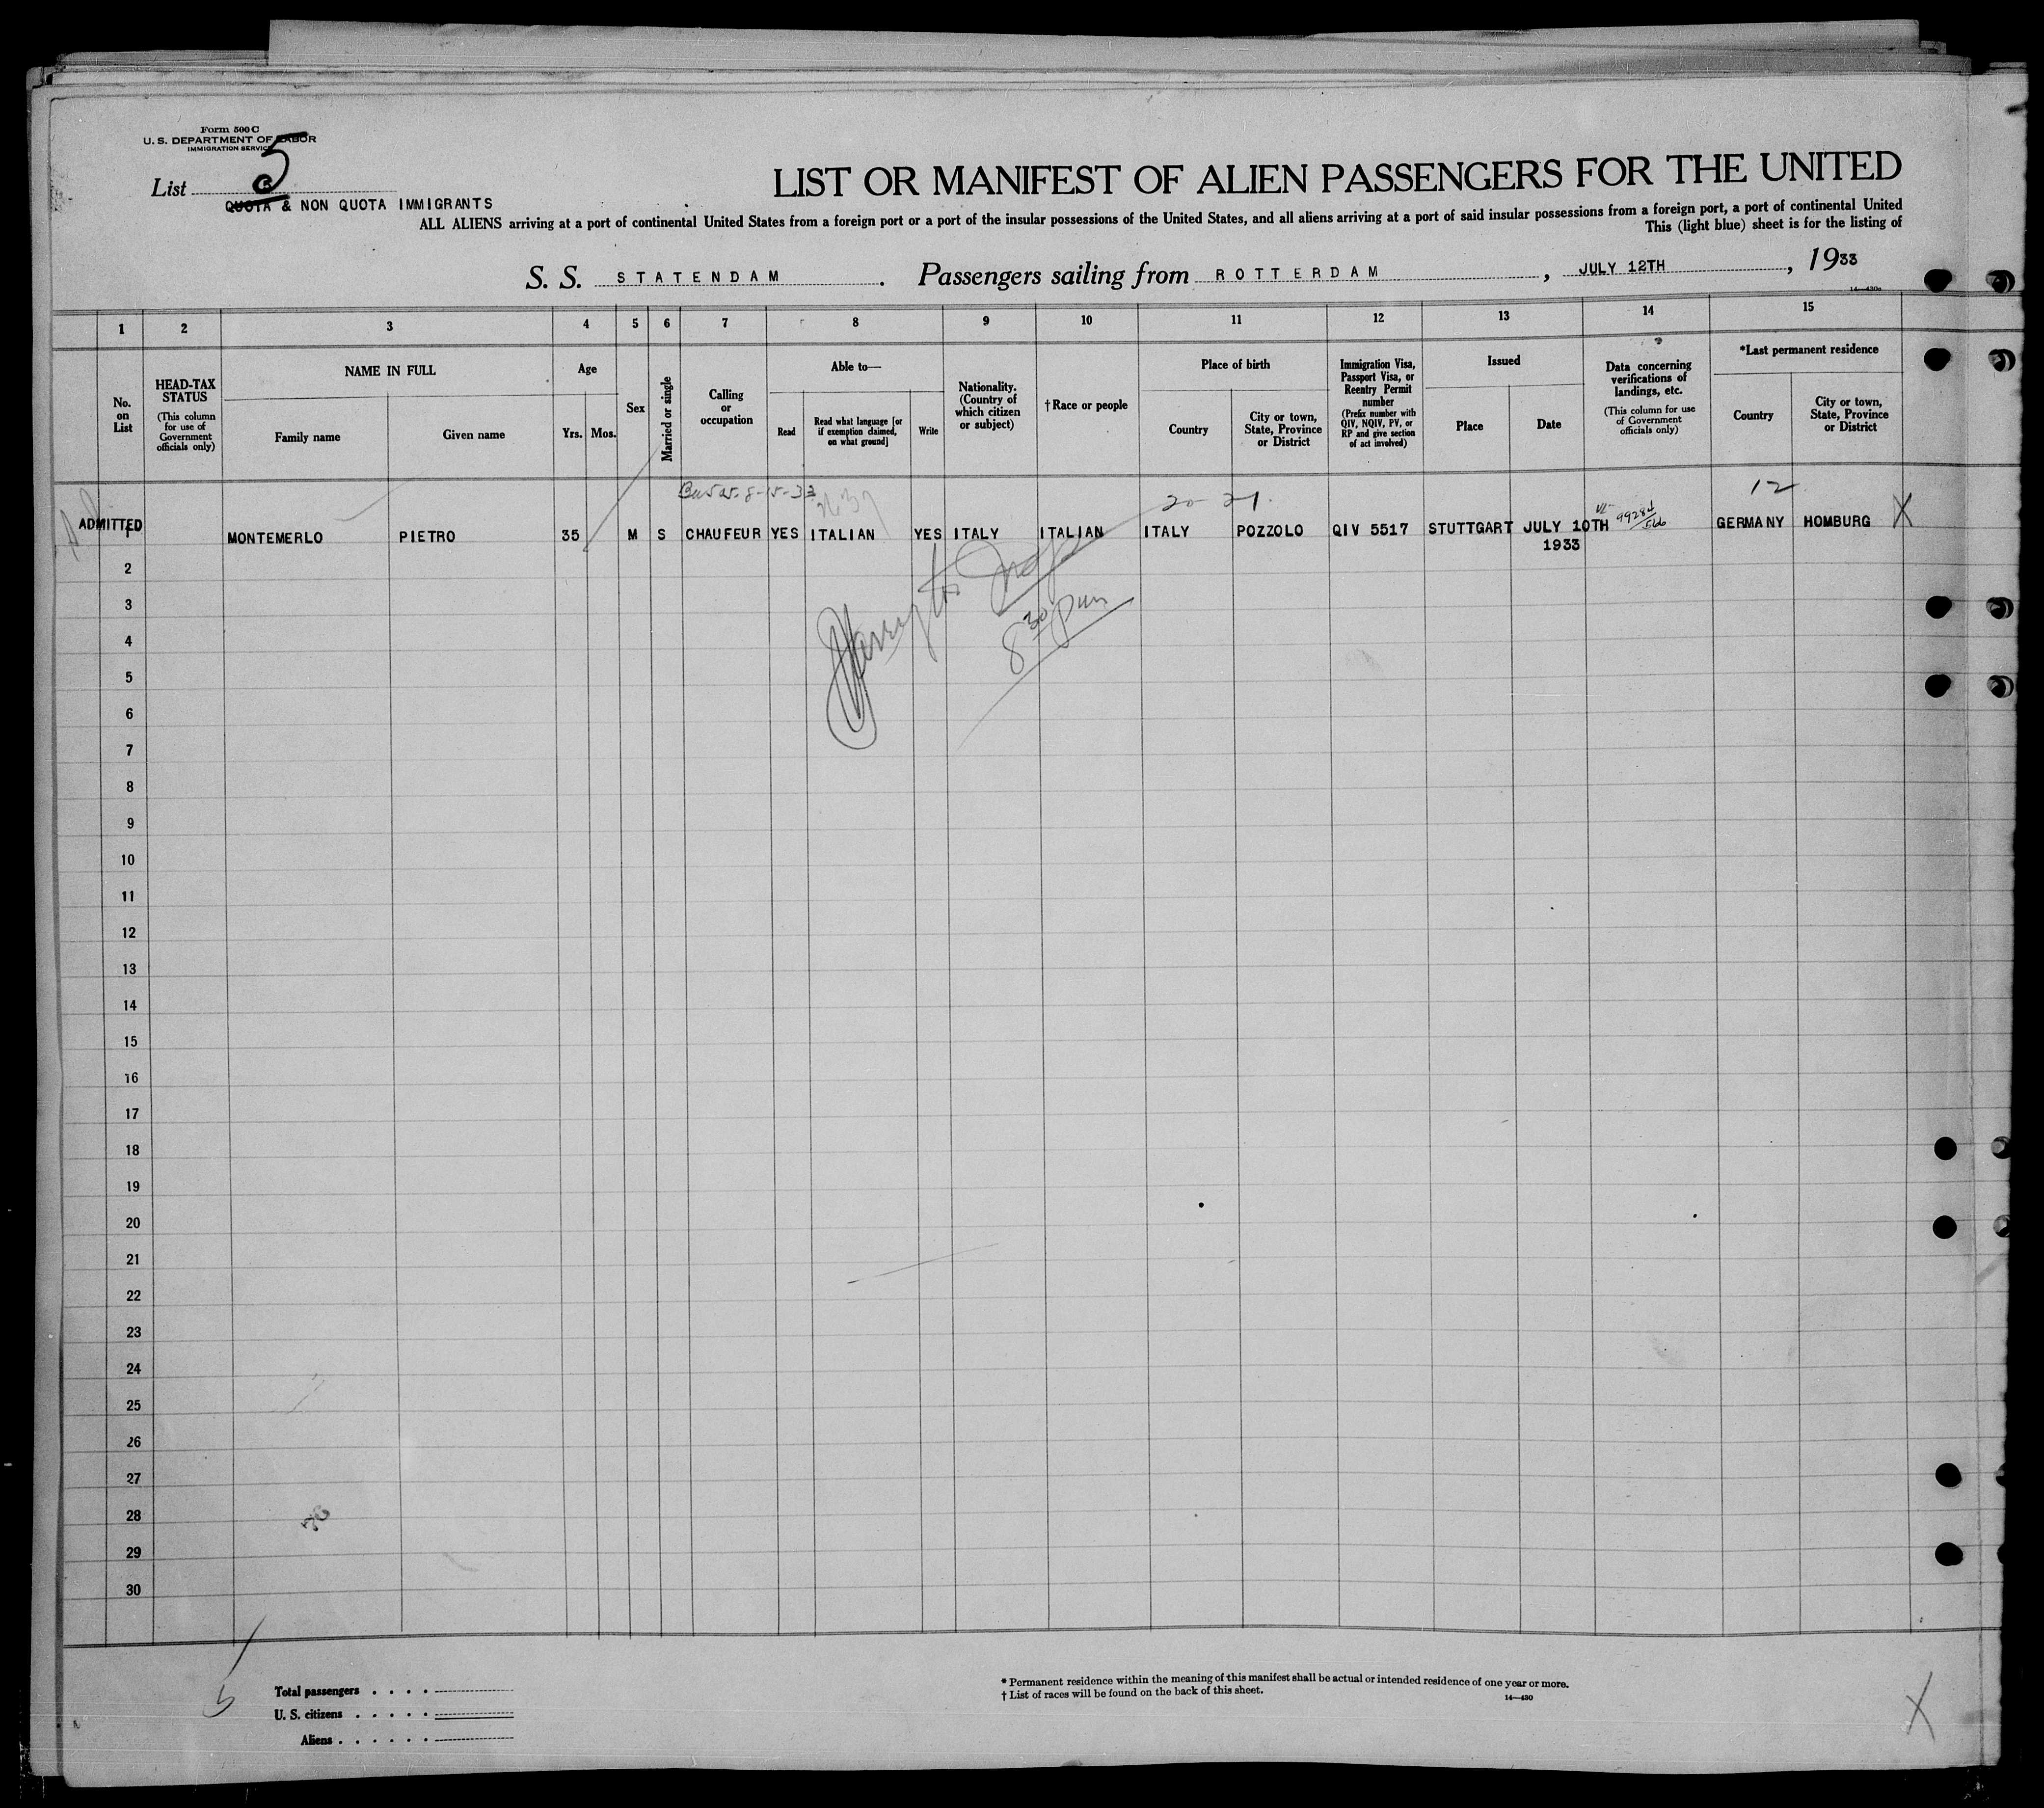 Form 500 C
U. S. DEPARTMENT OF LABOR
IMMIGRATION SERVICE
List 5
QUOTA & NON QUOTA IMMIGRANTS
LIST OR MANIFEST OF ALIEN PASSENGERS FOR THE UNITED
ALL ALIENS arriving at a port of continental United States from a foreign port or a port of the insular possessions of the United States, and all aliens arriving at a port of said insular possessions from a foreign port, a port of continental United
This (light blue) sheet is for the listing of
S. S. STATENDAM. Passengers sailing from ROTTERDAM, JULY 12TH, 1933
14—430a
1 2 3 4 5 6 7 8 9 10 11 12 13 14 15
No. on List
HEAD-TAX STATUS
(This column for use of Government officials only)
NAME IN FULL
Family name
Given name
Age
Yrs. Mos.
Sex
Married or single
Calling or occupation
Able to—
Read
Read what language [or if exemption claimed, on what ground]
Write
Nationality. (Country of which citizen or subject)
† Race or people
Place of birth
Country
City or town, State, Province or District
Immigration Visa, Passport Visa, or Reentry Permit number
(Prefix number with QIV, NQIV, PV, or RP and give section of act involved)
Issued
Place
Date
Data concerning verifications of landings, etc.
(This column for use of Government officials only)
*Last permanent residence
Country
City or town, State, Province or District
8-15-33
20 21
12
ADMITTED 1 MONTEMERLO PIETRO 35 M S CHAUFEUR YES ITALIAN YES ITALY ITALIAN ITALY POZZOLO QIV 5517 STUTTGART JULY 10TH GERMANY HOMBURG X
1933
8 30 pm
2
3
4
5
6
7
8
9
10
11
12
13
14
15
16
17
18
19
20
21
22
23
24
25
26
27
28
29
30
Total passengers . . . .
U. S. citizens . . . . .
Aliens . . . . . .
* Permanent residence within the meaning of this manifest shall be actual or intended residence of one year or more.
† List of races will be found on the back of this sheet.
14—430
X